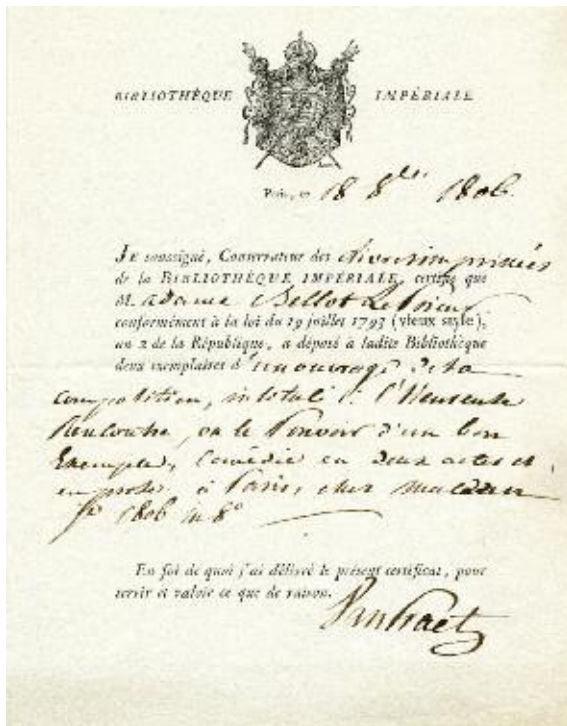 BIBLIOTHÈQUE IMPÉRIALE
Paris, ce 18 8bre 1806.
Je soussigné, Conservateur des Livres imprimés
de la BIBLIOTHÈQUE IMPÉRIALE, certifie que
M. adame Bellot Le Prieur
conformément à la loi du 19 juillet 1793 (vieux style),
an 2 de la République, a déposé à ladite Bibliothèque
deux exemplaires d'un ouvrage de sa
composition, intitulé : l'Heureuse
Rencontre, ou le Pouvoir d'un bon
Exemple, Comédie en deux actes et
en prose, à Paris, chez
1806 in 8°
En foi de quoi j'ai délivré le présent certificat, pour
servir et valoir ce que de raison.
VanPraet